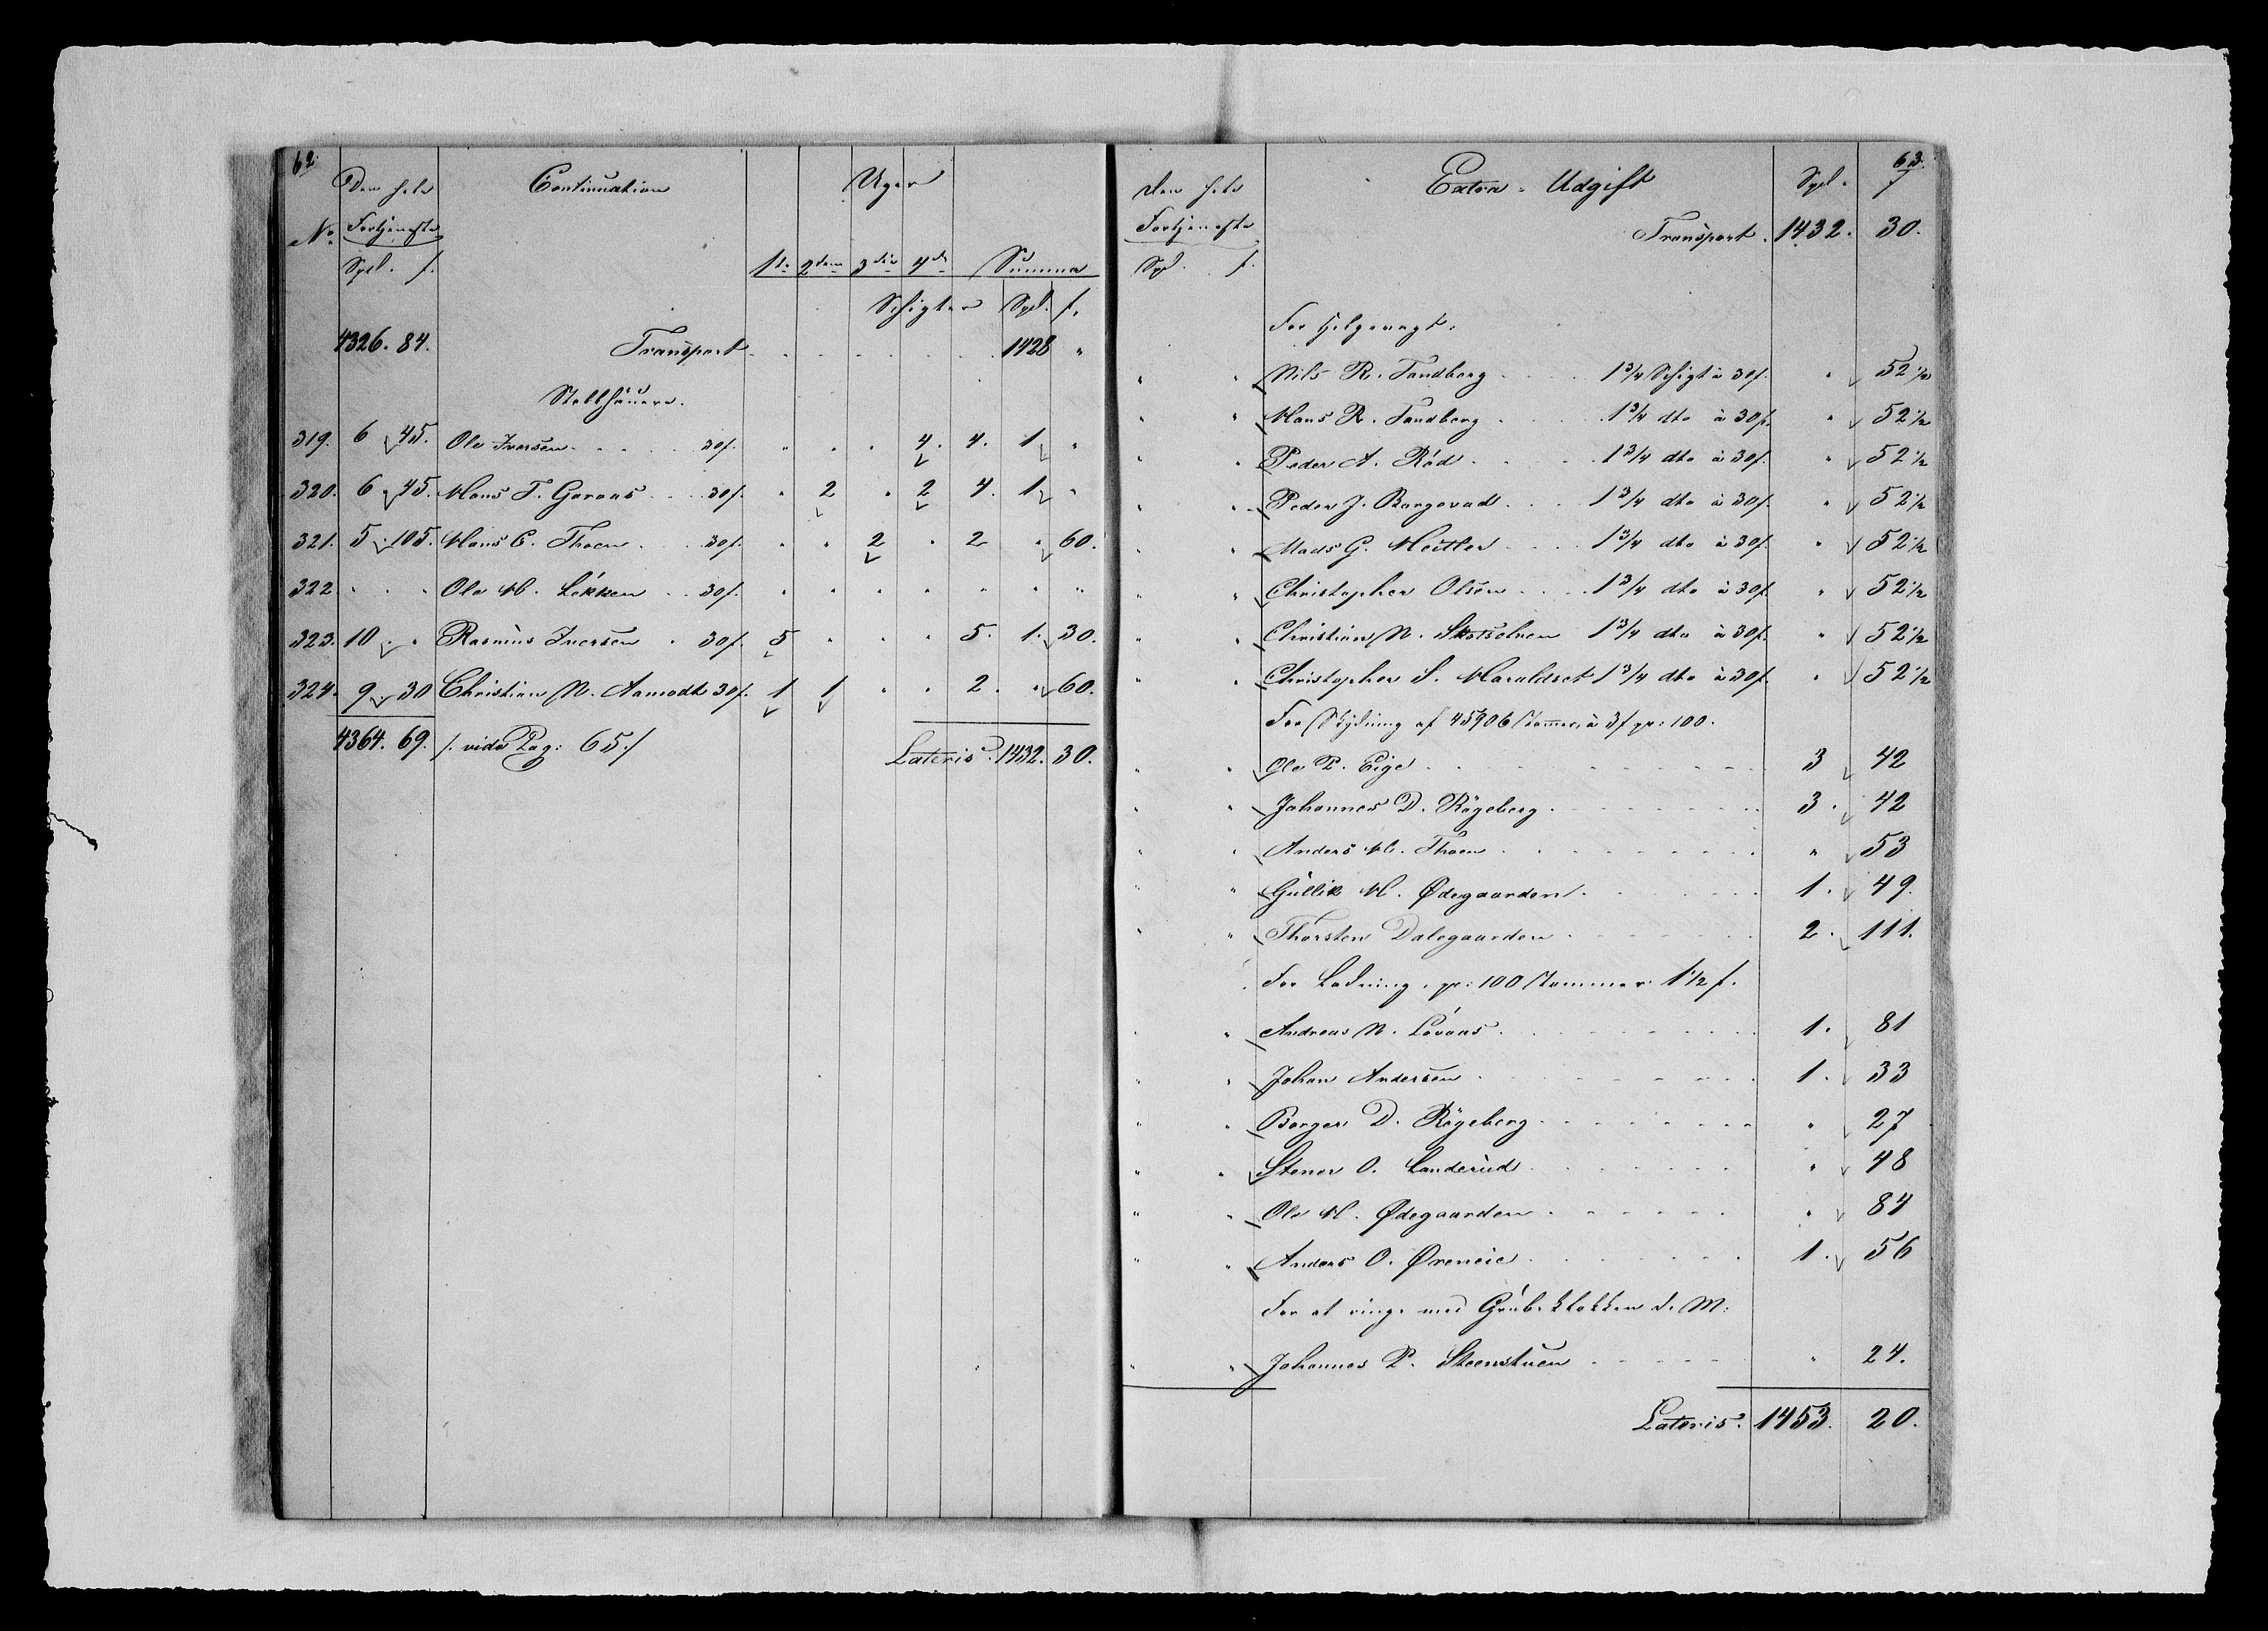 62.
Den hele Continuation Uger
No. Fortjeneste
Spd. s. 1ste 2den 3die 4de Summa
Schigter Spd. s.
4326. 84. Transport . . . . . . . 1428 "
Stollhauere.
319. 6 45. Ole Iversen . . . . 30s. " . . 4. 4. 1 "
320. 6 45. Hans T. Goraas . . . 30s. " 2 " 2 4. 1 "
321. 5 105. Hans C. Thoen . . 30s. " " 2 . 2 " 60.
322. " " Ole H. Løkken . . 30s. " " " " " " "
323. 10 " Rasmus Iversen . 30s. 5 " " " 5. 1. 30.
324. 9 30 Christian N. Aamodt 30s. 1 1 " " 2. " 60.
4364. 69. /. vide Pag: 65./ Lateris. 1432. 30.
63.
Den hele Extra-Udgift Spd. s
Fortjeneste Transport. 1432. 30.
Spd. s.
For Helgevagt.
" " Nils R. Sandberg . . . . 1 3/4 Schigt à 30s. " 52 1/2
" " Hans R. Sandberg . . . . 1 3/4 dto à 30s. " 52 1/2
" " Peder A. Röd . . . . 1 3/4 dto à 30s. " 52 1/2
" " Peder J. Borgerud . . . 1 3/4 dto à 30s. " 52 1/2
" " Mads G. . . . 1 3/4 dto à 30s. " 52 1/2
" " Christopher Olsen . . . 1 3/4 dto à 30s. " 52 1/2
" " Christian N. Skotselven 1 3/4 dto à 30s. " 52 1/2
" " Christopher S. Haraldset 1 3/4 dto à 30s. " 52 1/2
For Skydning af 45906 Tommer, à 3s pr: 100.
" " Ole P. Eige . . . . . . . 3 42
" " Johannes D. Rögeberg . . . . . . 3. 42
" " Anders H. Thoen . . . . . . " 53
" " Gullik H. Ødegaarden . . . . . . 1. 49.
" " Thorsten Dalegaarden . . . . . . 2. 111.
For Ladning, pr: 100 Tommer 1 1/2 s.
" " Andreas N. Lóvaas . . . . . . 1. 81
" " Johan Andersen . . . . . . 1. 33
" " Borger D. Rögeberg . . . . . . " 27
" " Stener O. Landerud . . . . . . " 48
" " Ole H. Ødegaarden . . . . . . " 84
" " Anders O. Øreneie . . . . . . 1. 56
For at ringe med Grubeklokken d. M:
" " Johannes P. Steenstuen . . . . . " 24.
Lateris. 1453. 20.